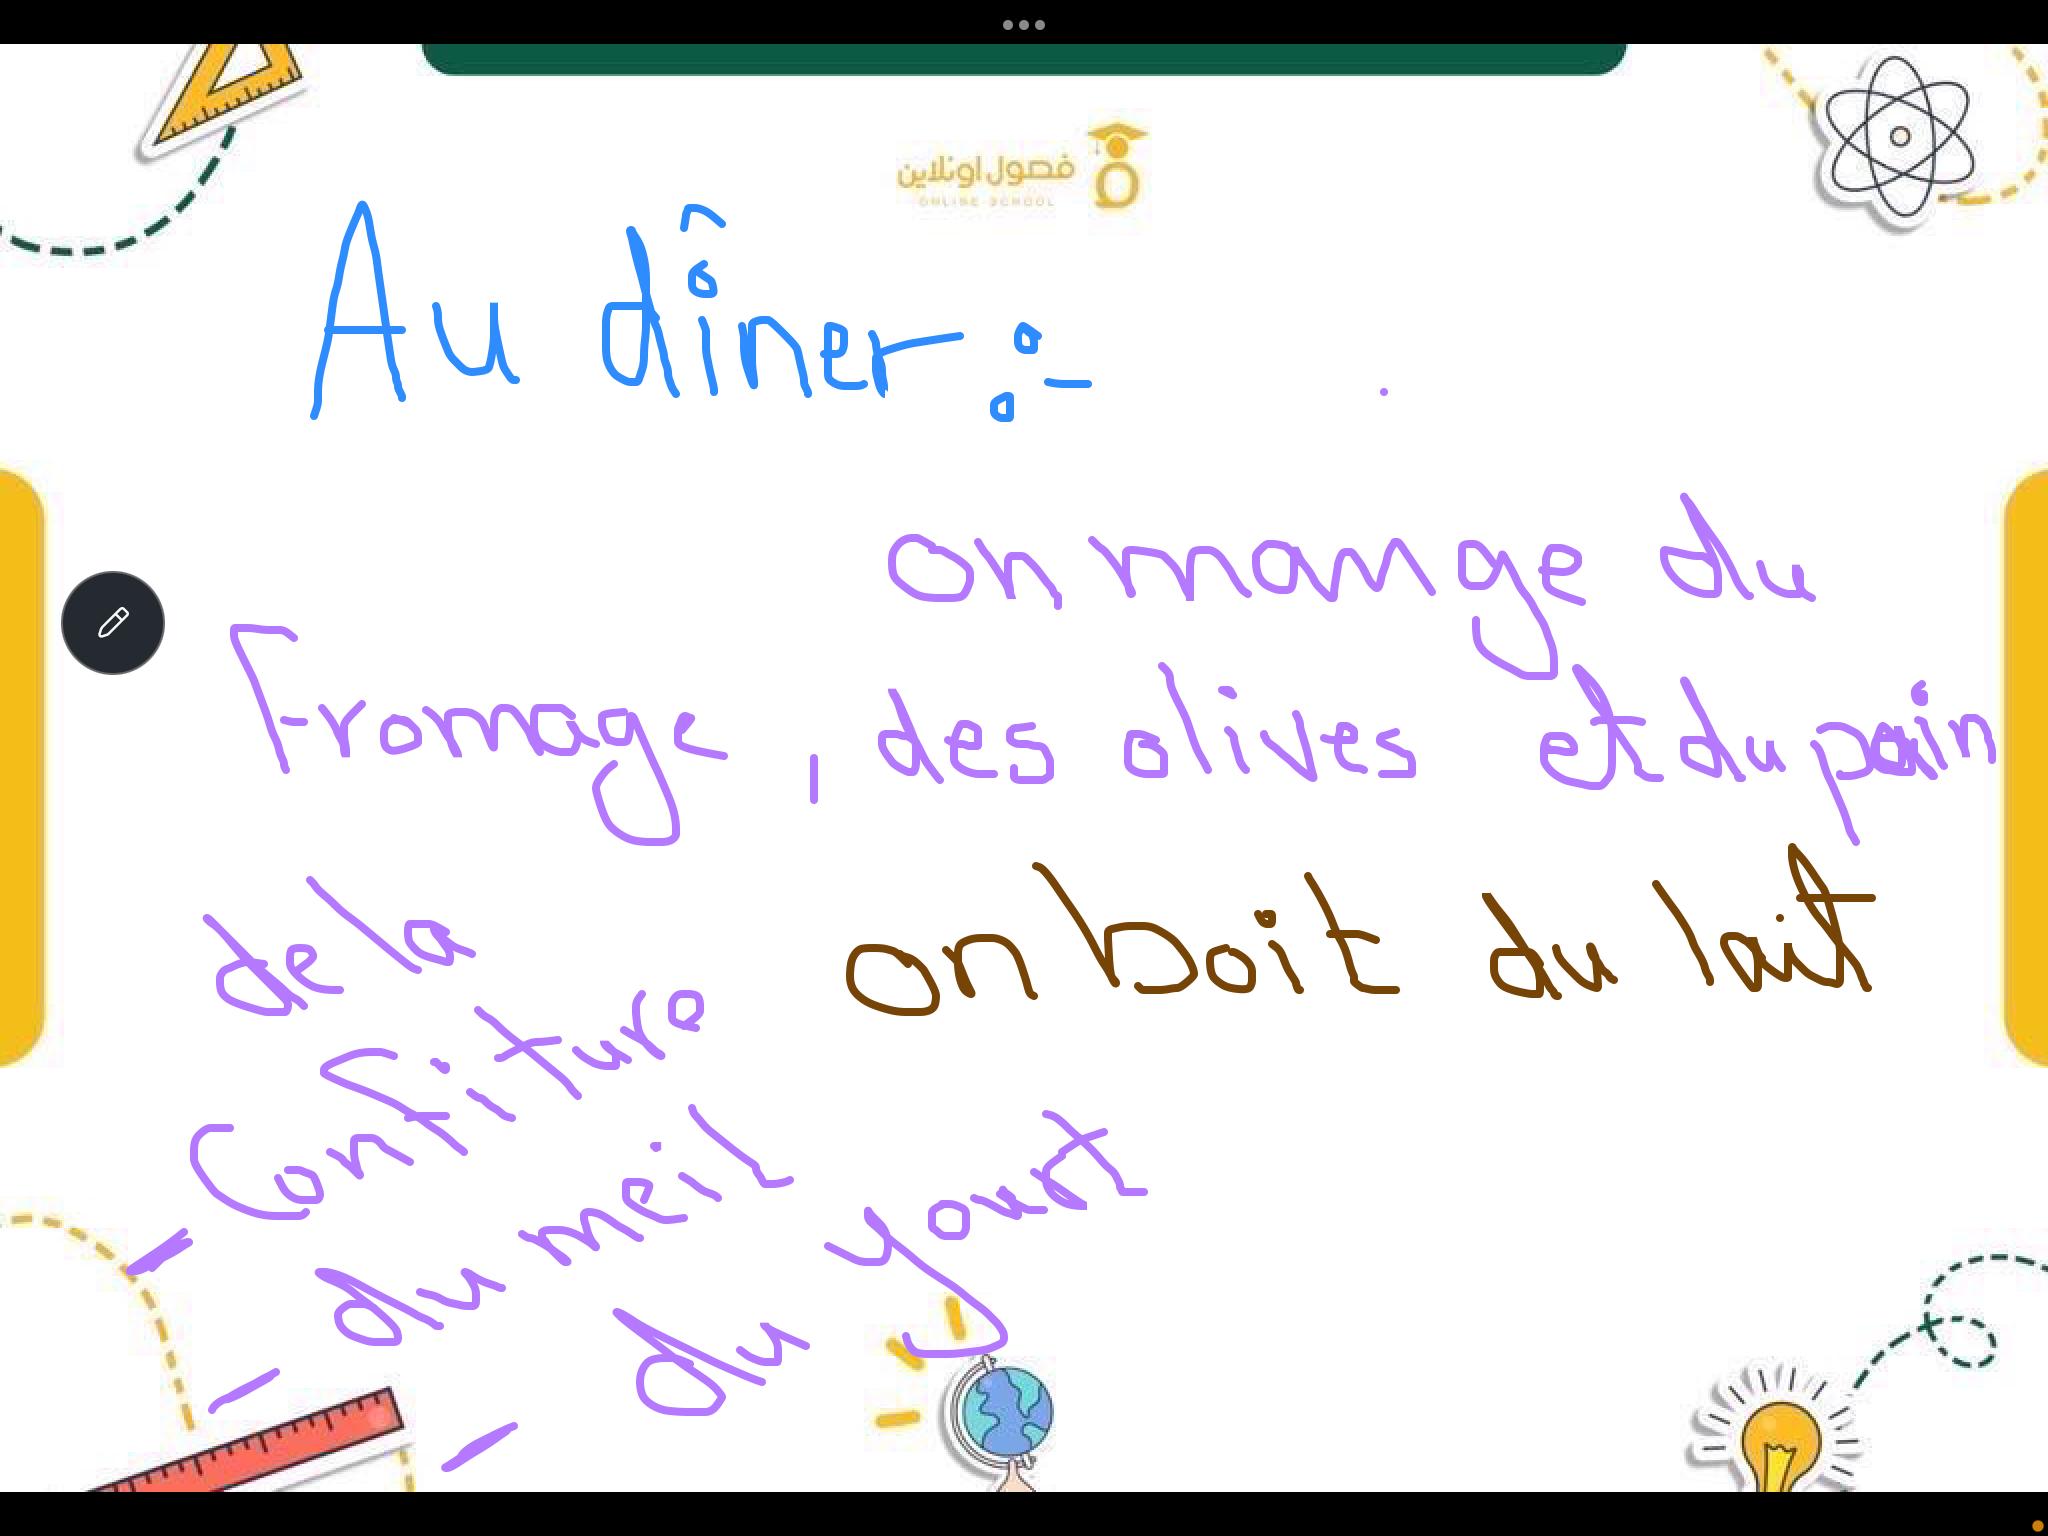 فصول اونلاين
ONLINE SCHOOL
Au dîner :-
on mange du
Fromage, des olives et du pain
on boit du lait
de la
Confiture
- du meil
- du yourt
-